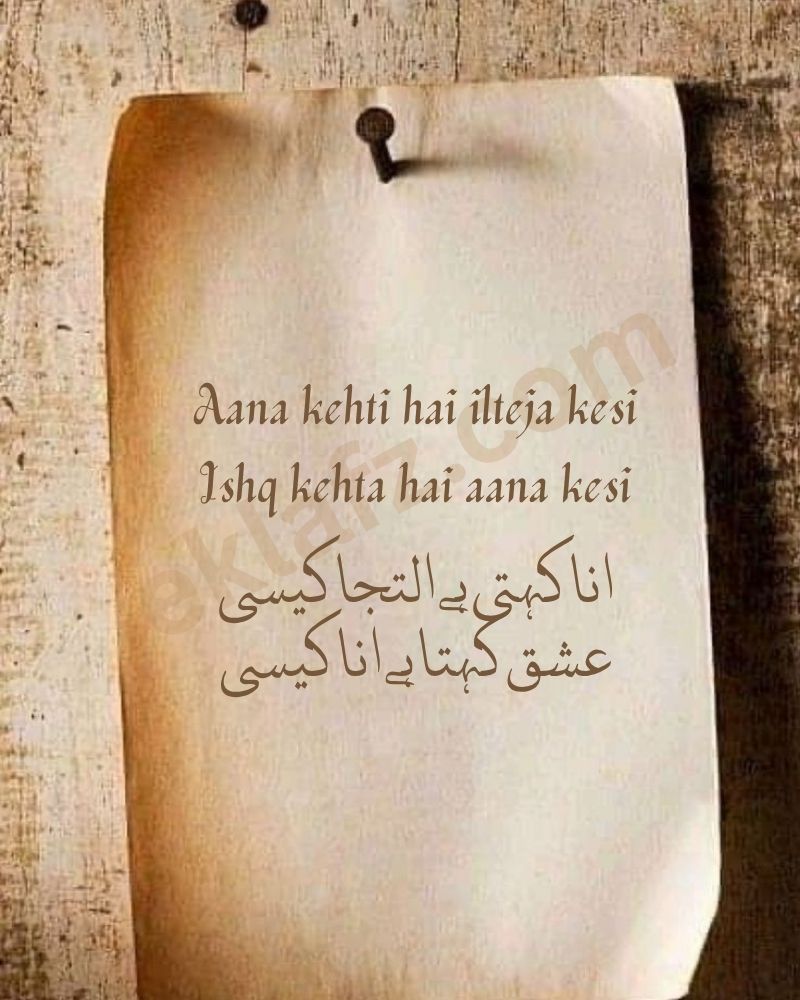 Aana kehti hai ilteja kesi
Ishq kehta hai aana kesi
انا کہتی ہے التجا کیسی
عشق کہتا ہے انا کیسی
eklafz.com